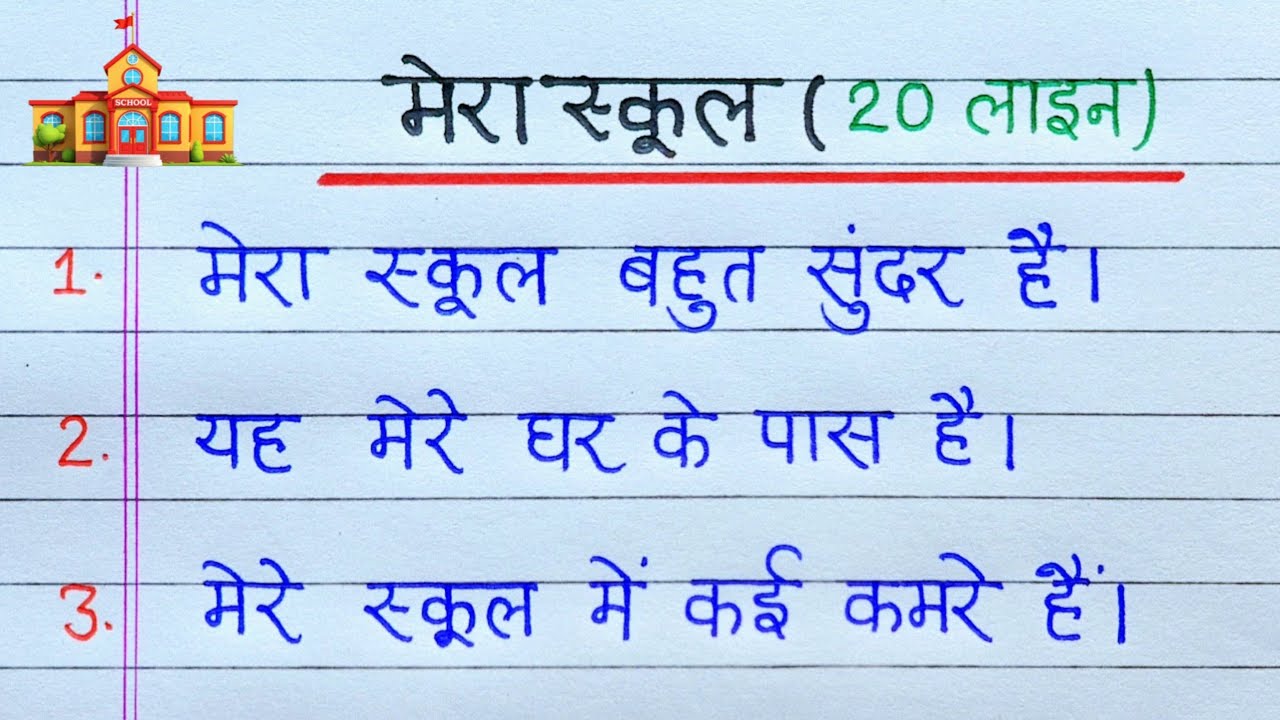 SCHOOL
मेरा स्कूल (20 लाइन)
1. मेरा स्कूल बहुत सुंदर है।
2. यह मेरे घर के पास है।
3. मेरे स्कूल में कई कमरे हैं।